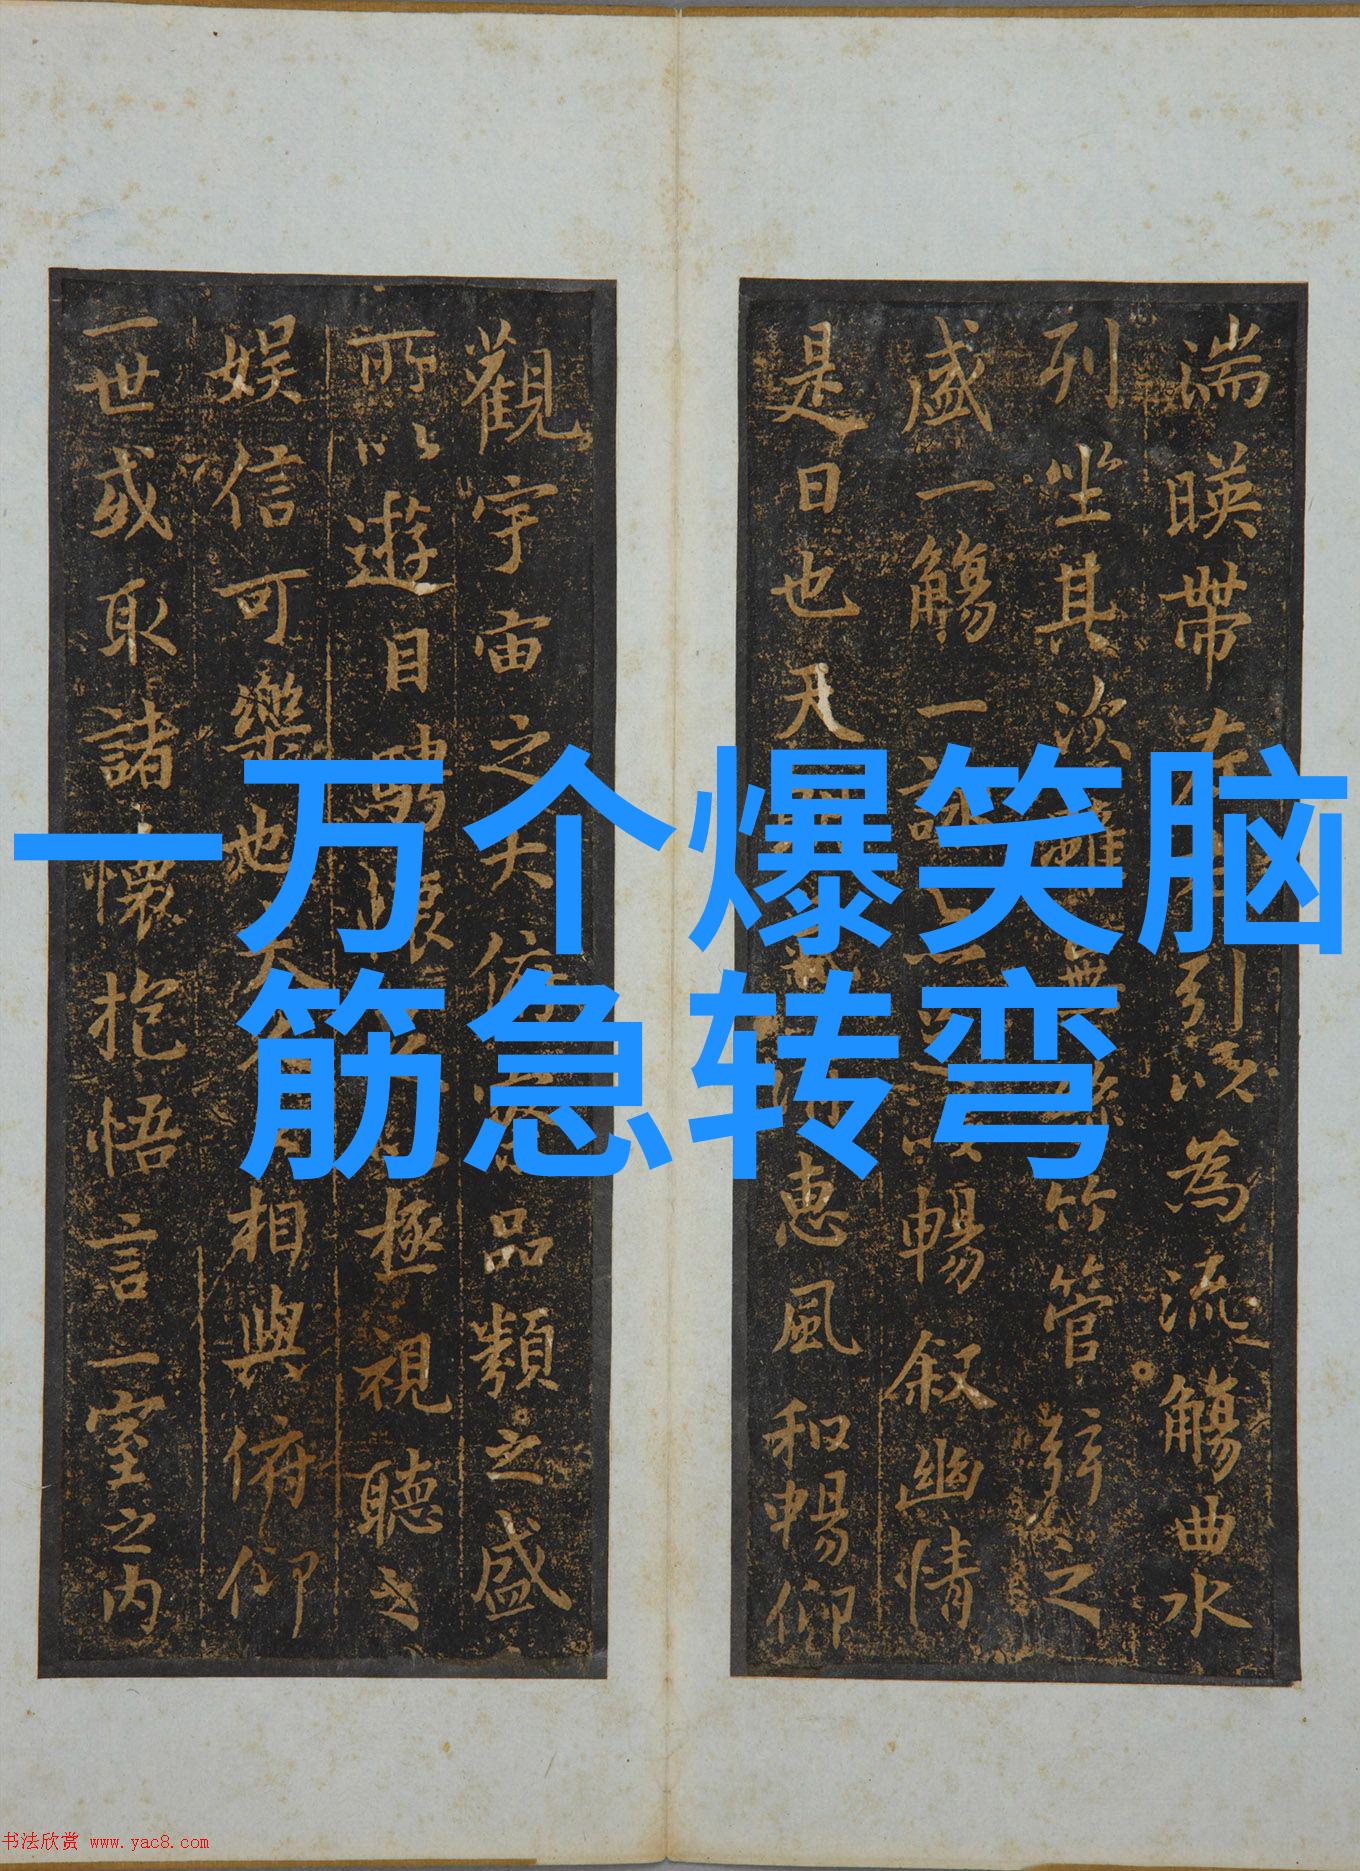 一万个爆笑脑
筋急转弯
湍暎帶左引以為流觴曲水
列坐其次雖無竹管弦之
盛一觴一詠以暢叙幽情
是日也天惠風和暢仰
觀宇宙之大俯品類之盛
所以遊目騁懷極視聽之
娛信可樂也夫相與俯仰
一世或取諸懷抱悟言一室之內
书法欣赏 www.yac8.com